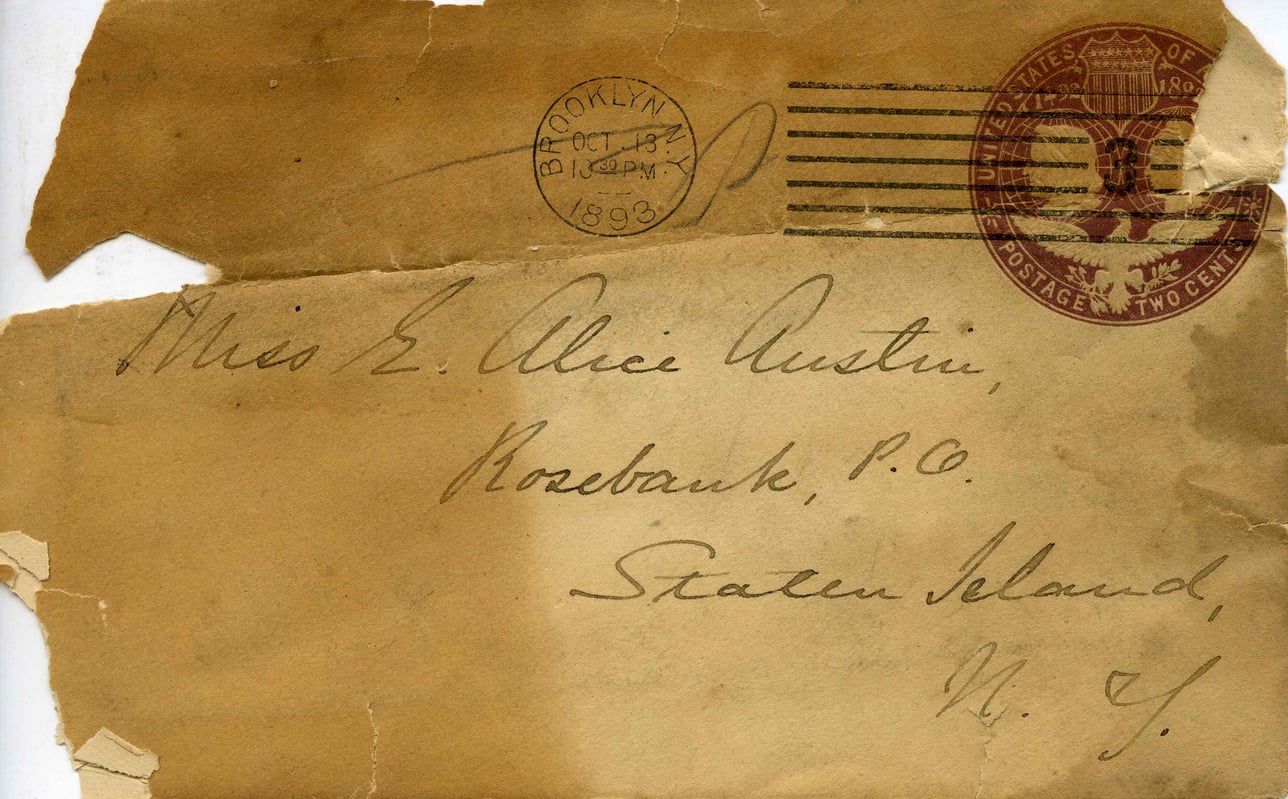 BROOKLYN N.Y.
OCT. 13.
10 30 PM
1893
3
UNITED STATES OF
1492
POSTAGE TWO CENTS
Miss E. Alice Austin,
Rosebank, P.O.
Staten Island,
N. Y.